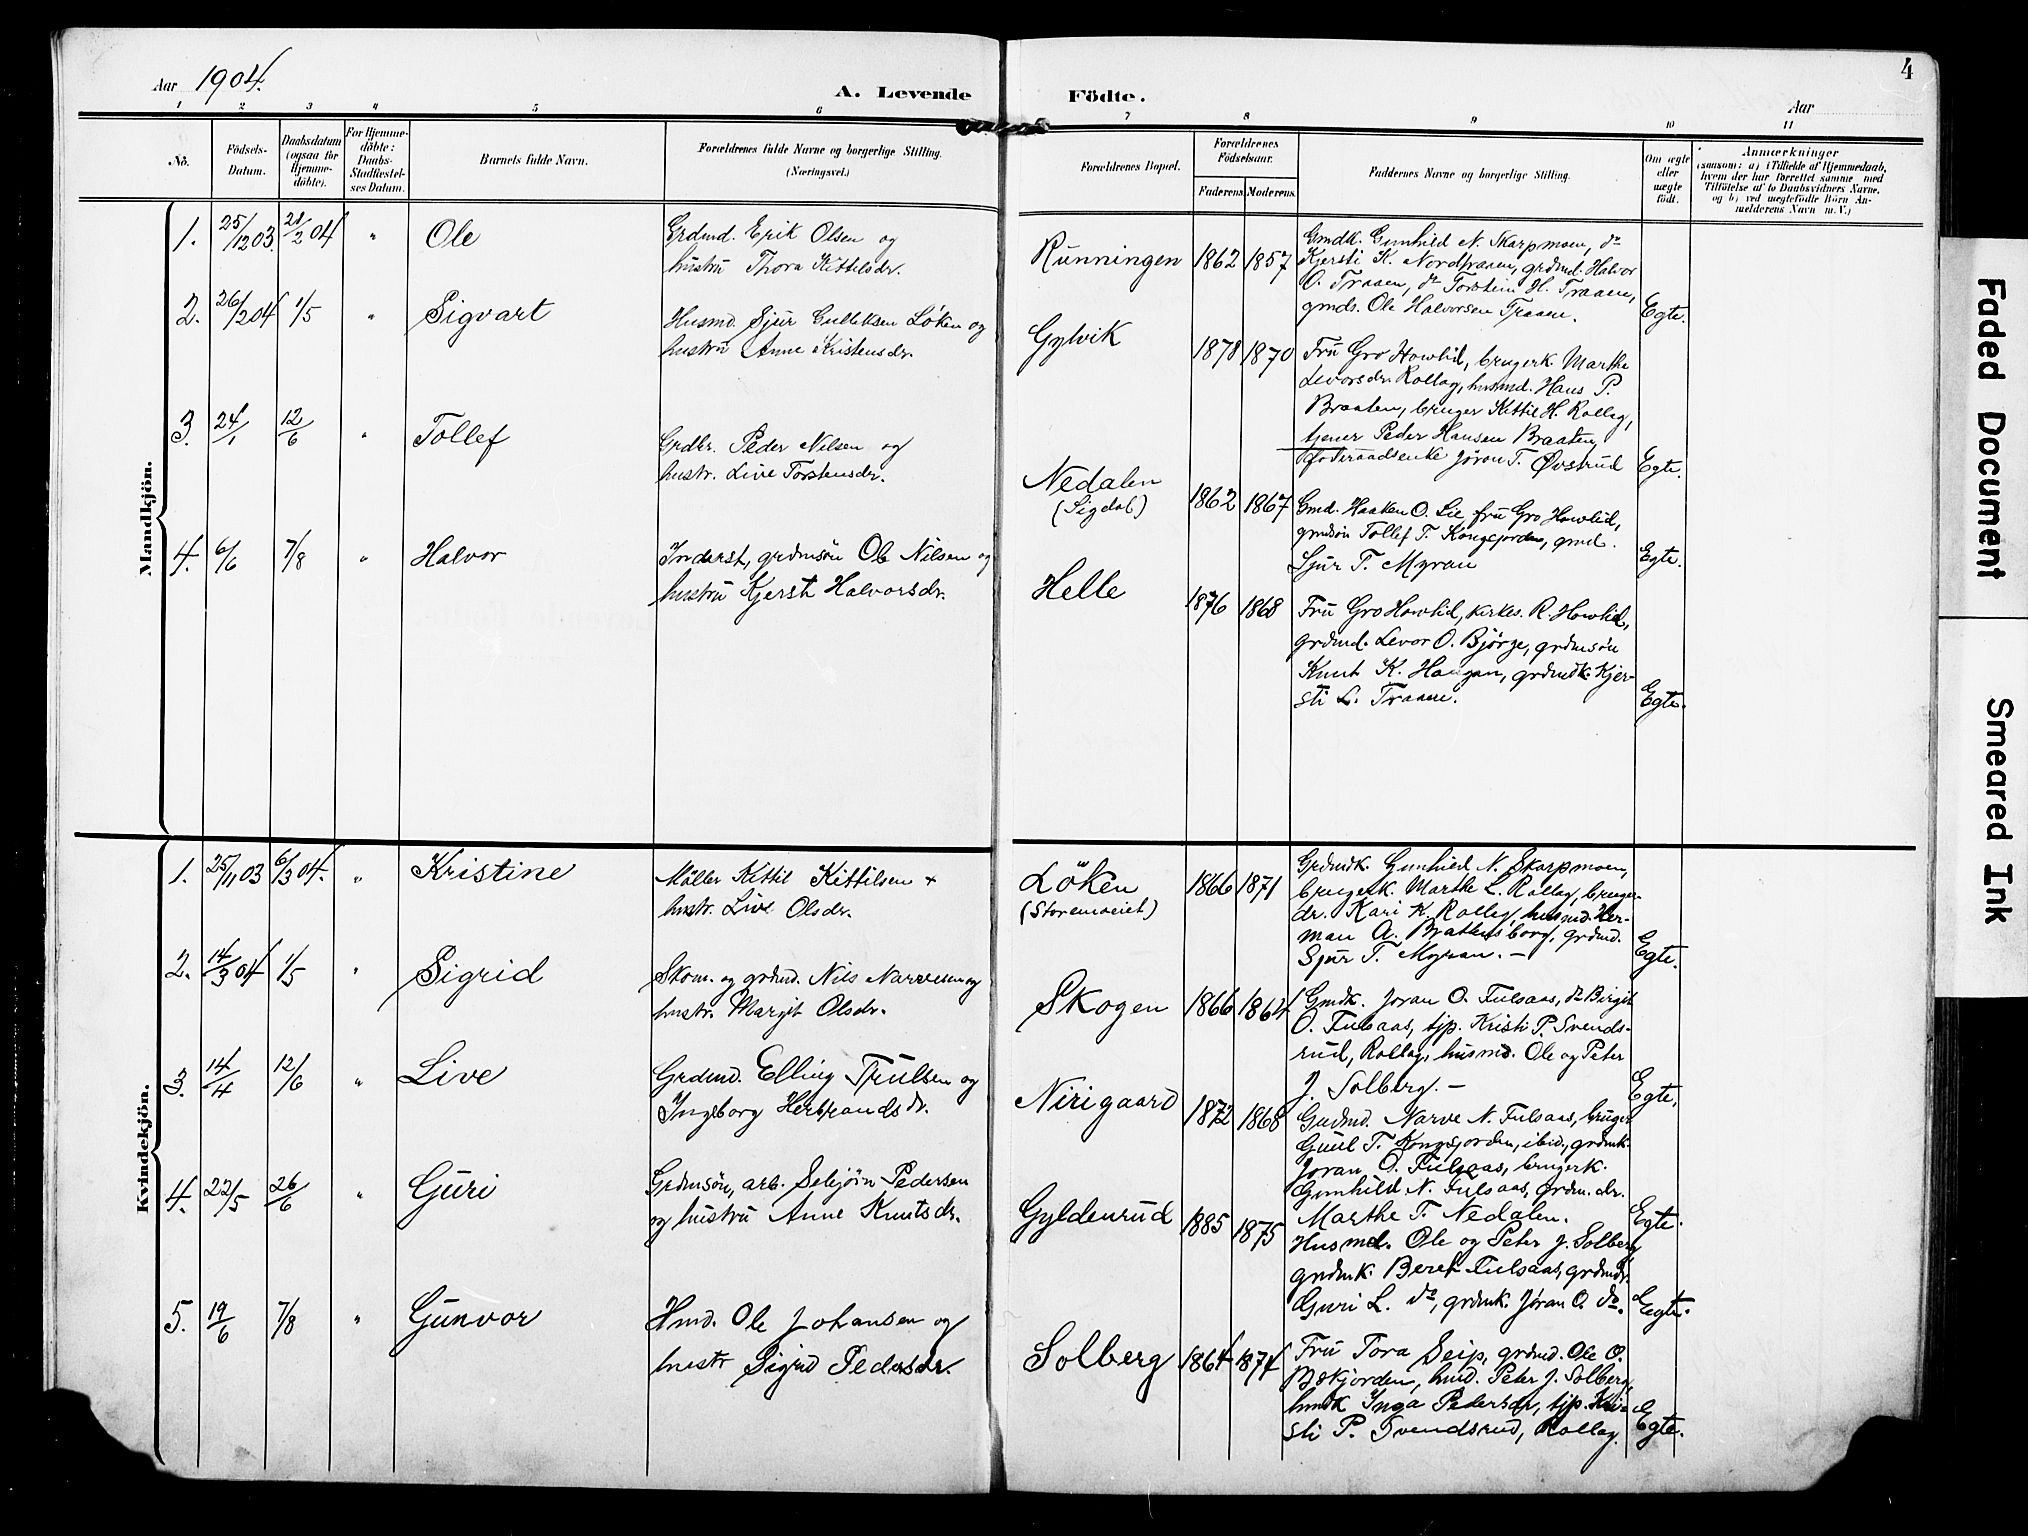 Aar 1904.
A. Levende
Födte.
Aar
4
1 2 3 4 5 6 7 8 9 10 11
No.
Födsels-
Datum.
Daabsdatum
(ogsaa for
Hjemme-
döbte).
For Hjemme-
döbte:
Daabs-
Stadfæstel-
ses Datum.
Barnets fulde Navn.
Forældrenes fulde Navne og borgerlige Stilling.
(Næringsvei.)
Forældrenes Bopæl.
Forældrenes
Födselsaar.
Faderens. Moderens.
Faddernes Navne og borgerlige Stilling.
Om ægte
eller
uægte
födt.
Anmærkninger
(saasom: a) i Tilfælde af Hjemmedaab,
hvem der har forrettet samme med
Tilföielse af to Daabsvidners Navne,
og b) ved uægtefödte Börn An-
melderens Navn m. V.)
Mandkjön.
1. 25/12 03. 21/2 04 " Ole
Grdmd. Erik Olsen og
hustru Thora Kittilsdr.
Runningen 1862 1857
Gmdk. Gunhild N. Skarpmoen, do
Kjersti K. Nordtraaen, grdmd. Halvor
O. Traaen, do Torstein H. Traaen,
gmds. Ole Halvorsen Traaen.
Egte.
2. 26/2 04 1/5 " Sigvart
Husmd. Sjur Gulliksen Löken og
hustru Anne Kristensdr.
Gylvik 1878 1870
Fru Gro Howlid, brugerk. Marthe
Levorsdr. Rollag, husmd. Hans P.
Braaten, bruger Kittil H. Rollag,
tjener Peder Hansen Braaten,
foderaadsenke Jöran T. Øvstrud
Egte.
3. 24/1 12/6 " Tollef
Grdbr. Peder Nilsen og
hustr. Live Torstensdr.
Nedalen
(Sigdal)
1862 1867
Gmd. Haaken O. Lie, fru Gro Howlid,
gmdsön Tollef T. Kongsjorden, gmd.
Sjur T. Myran
Egte.
4. 6/6 7/8 " Halvor
Inderst, grdmsön Ole Nilsen og
hustru Kjersti Halvorsdr.
Helle 1876 1868
Fru Gro Howlid, kirkes. R. Howlid,
grdmd. Levor O. Björge, grdmsön
Knut K. Haugan, grdmdk. Kjer-
sti L. Traaen.
Egte.
Kvindekjön.
1. 25/11 03 6/3 04. " Kristine
Möller Kittil Kittilsen +
hustr. Live Olsdr.
Löken
(Storemoeiet)
1866 1871
Grdmdk. Gunhild N. Skarpmoen,
brugerk. Marthe L. Rollag, bruger-
dr. Kari K. Rollag, husmd. Her-
man A. Brattensborg, grdmd.
Sjur T. Myran. —
Egte.
2. 14/3 04 1/5 " Sigrid
Skom. og grdmd. Nils Narvesen og
hustr. Margit Olsdr.
Skogen 1866 1864
Gmdk. Joran O. Fulsaas, do Birgit
O. Fulsaas, tjp. Kristi P. Svends-
rud, Rollag, husmd. Ole og Peter
J. Solberg. —
Egte.
3. 14/4 12/6 " Live
Grdmd. Elling Trulsen og
Ingeborg Herbrandsdr.
Nirigaard 1872 1868
Gudmd. Narve N. Fulsaas, bruger
Guul T. Kongsjorden, ibid., grdmk.
Joran O. Fulsaas, brugerk.
Gunhild N. Fulsaas, grdm. dr.
Marthe T. Nedalen.
Egte.
4. 22/5 26/6 " Guri
Grdmsön, arb. Sebjörn Pedersen
og hustru Anne Knutsdr.
Gyldenrud 1885 1875
Husmd. Ole og Peter J. Solberg,
grdmk. Beret Fulsaas, grdmdr.
Guri L. do, grdmk. Jöran O. do.
Egte.
5. 19/6 7/8 " Gunvor
Hmd. Ole Johansen og
hustr Sigrid Pedersdr.
Solberg 1864 1874
Fru Tora Seip, grdmd. Ole O.
Bækjorden, hmd. Peter J. Solberg,
hmdk Inga Pedersdr, tjp. Kri-
sti P. Svendsrud, Rollag.
Egte.
Faded Document
Smeared Ink